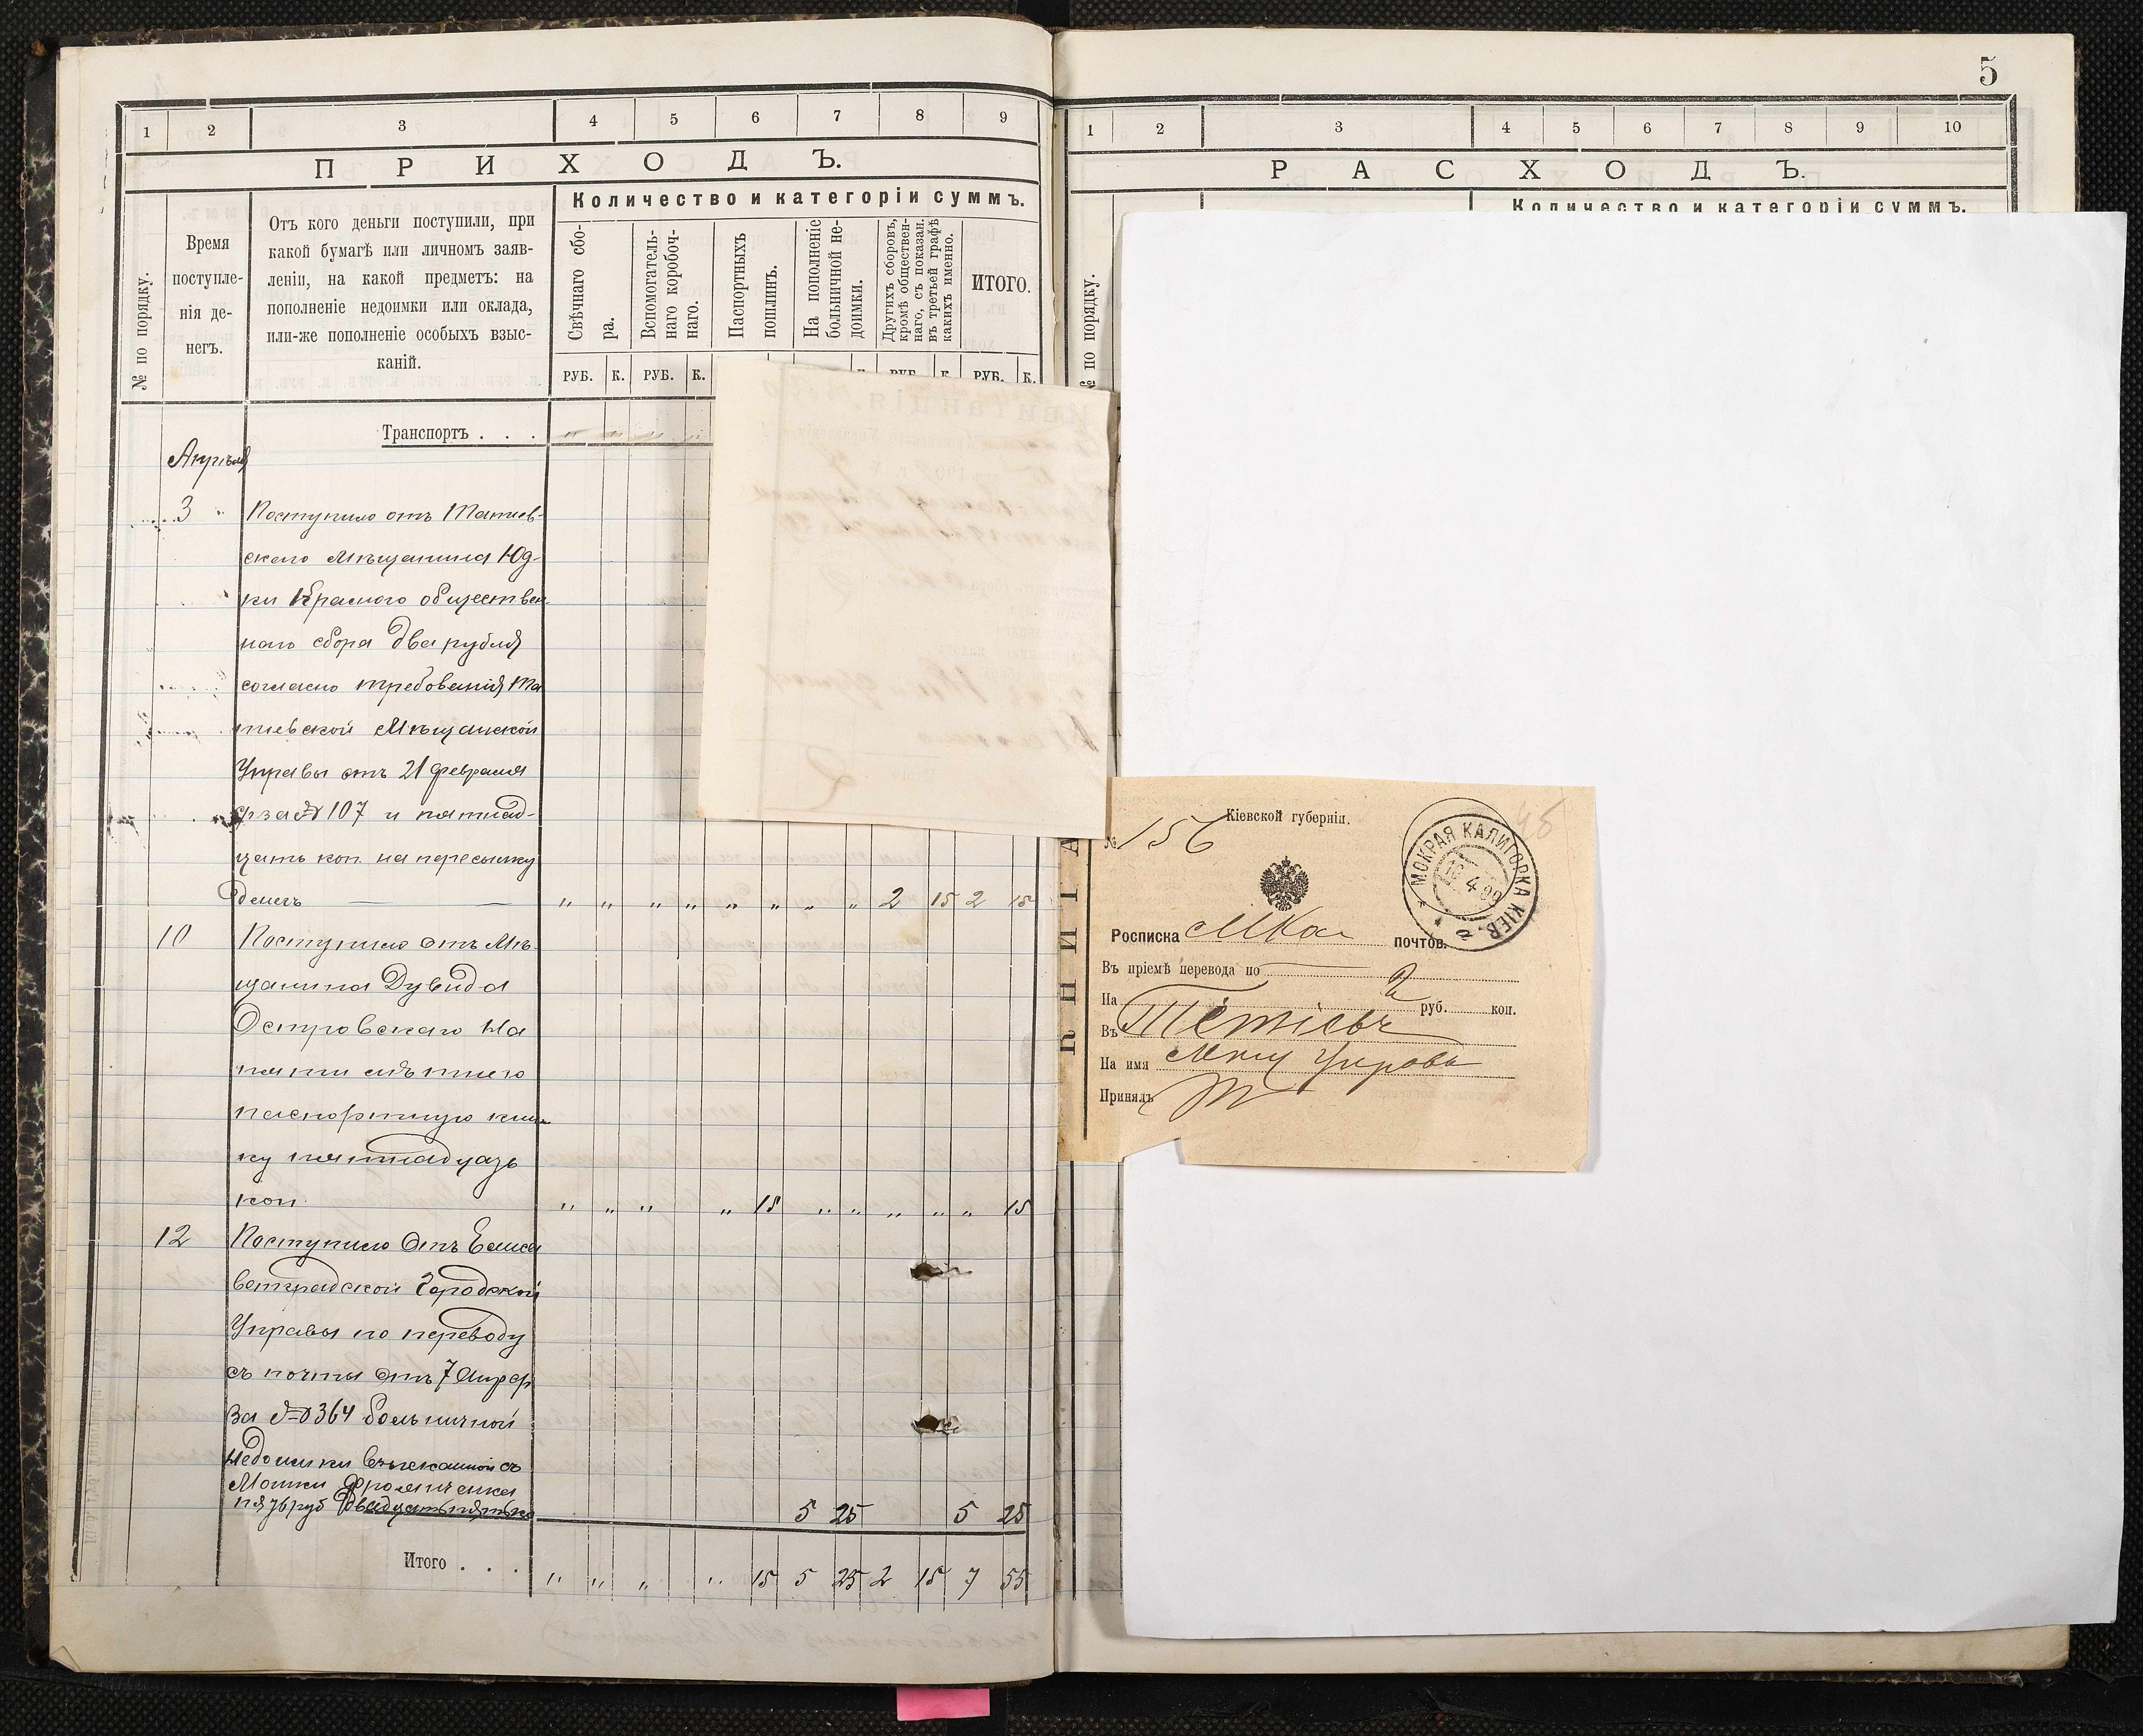 5
1 2 3 4 5 6 7 8 9
ПРИХОДЪ.
№ по порядку.
Время
поступле-
нія де-
негъ.
Отъ кого деньги поступили, при
какой бумагѣ или личномъ заяв-
леніи, на какой предметъ: на
пополненіе недоимки или оклада,
или-же пополненіе особыхъ взыс-
каній.
Количество и категоріи суммъ.
Свѣчнаго сбо-
ра.
Вспомогатель-
наго коробоч-
наго.
Паспортныхъ
пошлинъ.
На пополненіе
больничной не-
доимки.
Другихъ сборовъ,
кромѣ обществен-
наго, съ показан.
въ третьей графѣ
какихъ именно.
ИТОГО.
РУБ. К. РУБ. К. РУБ. К. РУБ. К.
Транспортъ . . .
Апрѣля
3 Поступило отъ Татіев-
скаго Мѣщанина Юд-
ки Краснаго обществен-
наго сбора два рубля
согласно требованія Та
тіевской Мѣщанской
Управы отъ 21 февраля
за № 107 и пятнад-
цать коп на пересылку
денегъ — — " " " " " " " " 2 15 2 15
10 Поступило отъ Мѣ-
щанина Дувида
Островскаго На
пяти лѣтнею
паспортную книж
ку пятнадцать
коп " " " " 15 " " " " " 15
12 Поступило отъ Елиса
ветградской Городской
Управы по переводу
съ почты отъ 7 Апр
За № 364 больничной
недоимки взысканной съ
Мошки
пять руб двадцать пять ко 5 25 5 25
Итого . . . " " " " 15 5 25 2 15 7 55
1 2 3 4 5 6 7 8 9 10
РАСХОДЪ.
Количество и категоріи суммъ.
№ по порядку.
Кіевской губерніи.
№ 156
МОКРАЯ КАЛИГОРКА КІЕВ.
Росписка МКа почтов.
Въ пріемѣ перевода по
На 2 руб. коп.
Въ Тетіевъ
На имя Мѣщ Управы
Принялъ